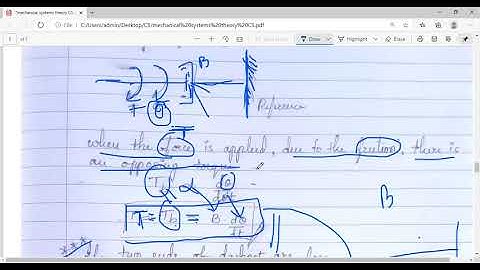 "mechanical systems theory CS.p
File | C:/Users/admin/Desktop/CS/mechanical%20systems%20theory%20CS.pdf
of 7
Draw
Highlight
Erase
B
T θ
Reference
T
when the force is applied, due to the friction, there is
an opposing torque
Tb α dθ/dt
B
T = Tb = B dθ/dt
*** If two ends of dashpot are